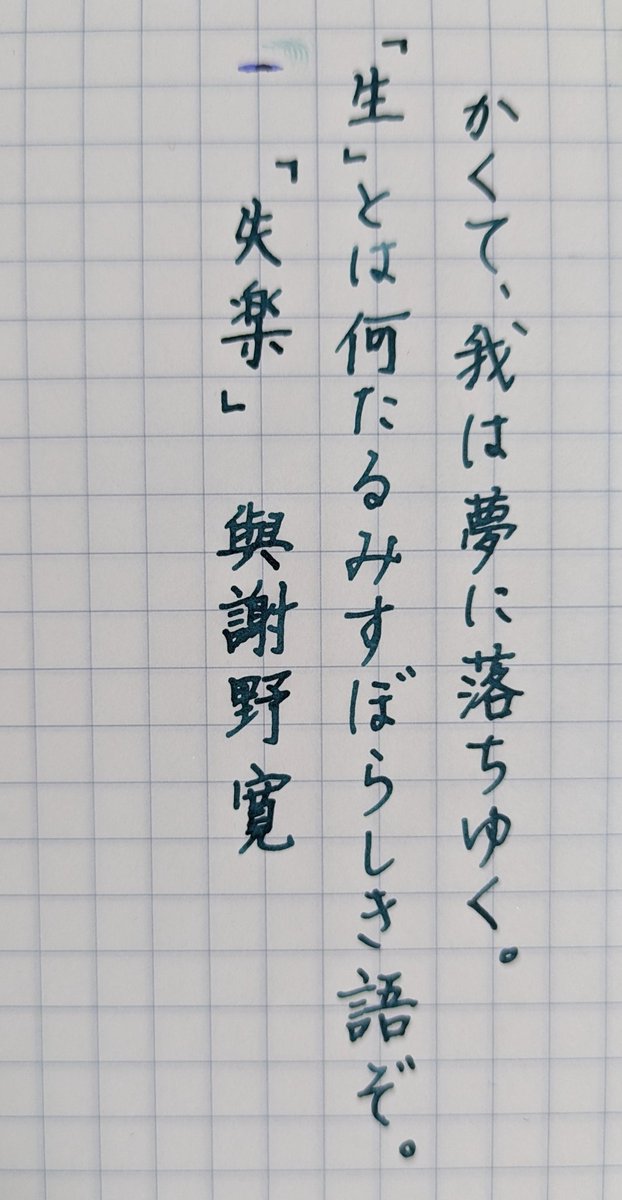 かくて、我は夢に落ちゆく。
「生」とは何たるみすぼらしき語ぞ。
「失楽」 與謝野寛